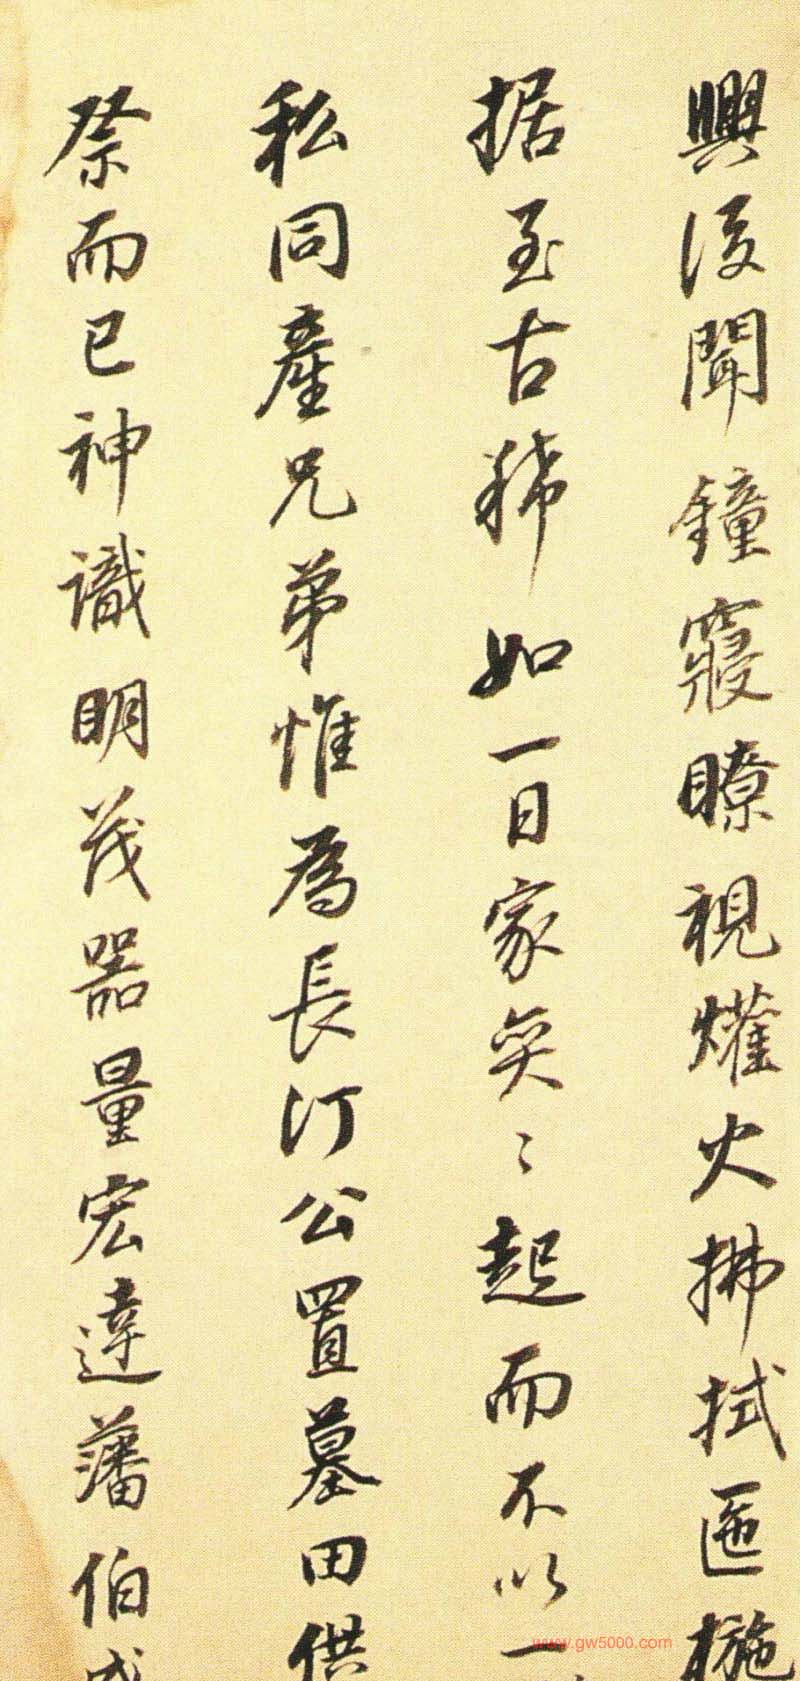 興復聞鐘寢瞭視爟火拂拭匜椸
据至古稀如一日家奕〻起而不以一
私同產兄弟惟為長汀公置墓田供
祭而已神識明茂器量宏達藩伯
www.gw5000.com